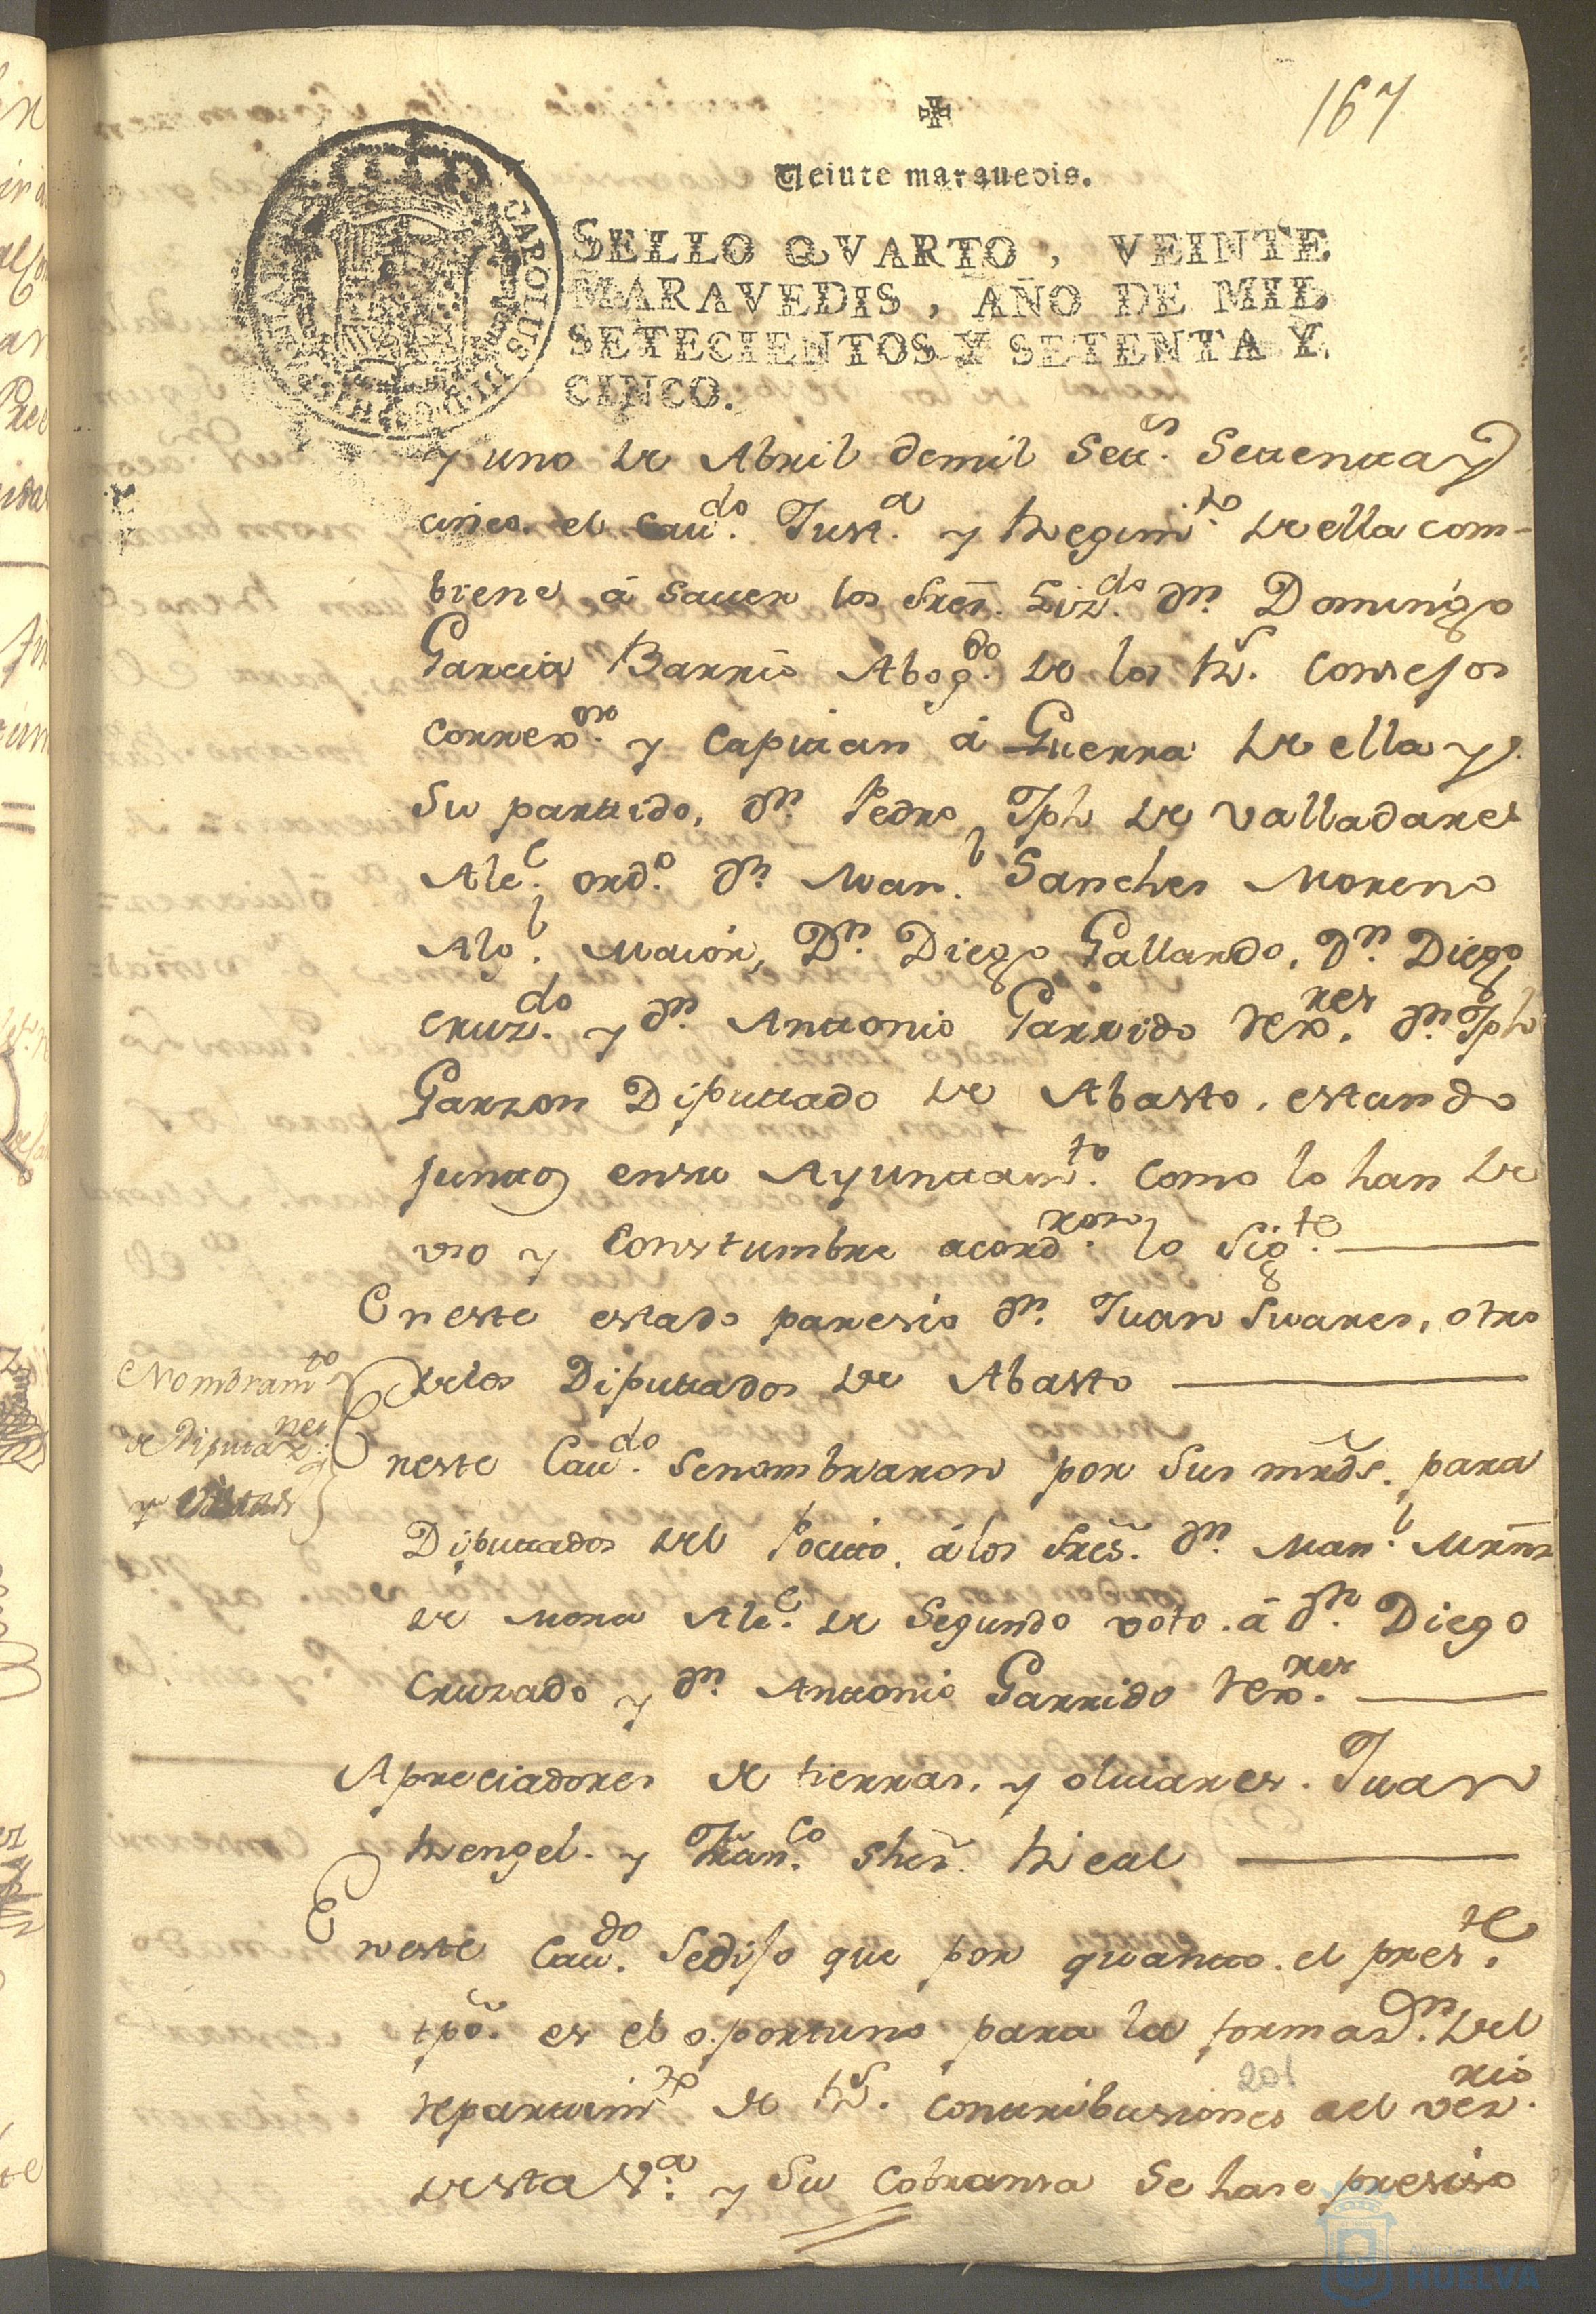 167
Veinte maravedis.
SELLO QVARTO, VEINTE
MARAVEDIS, AÑO DE MIL
SETECIENTOS Y SETENTA Y
CINCO.
CAROLUS III D G HISPANIAR
y uno de Abril demil Sett.s Settenta y
cinco. el Cau.do Just.a y Regim.to de ella com-
biene á sauer los Sres. Liz.do Dn. Domingo
Garcia Barrio Abog.do de los R.s Consejos
correx.or y Capitan á Guerra de ella y
su partido, Dn. Pedro Jph de Valladares
Alc.e ord.o Dn. Man.l Sanches Moreno
Alg.l Maior, Dn. Diego Gallardo, Dn. Diego
Cruz.do y Dn. Antonio Garrido Rex.res Dn. Jph
Garzon Diputtado de Abasto, estando
juntos ensu Ayuntam.to como lo han de
uso y Constumbre acord.ron lo Sig.te
En este estado paresio Dn. Juan Suares, otro
delos Diputtados de Abasto
Nombram.to
de Diputaz.nes
y
Eneste Cau.do senombraron por Sus mrds. para
Diputtados del Pocito á los Sres. Dn. Man.l Mrnz
de Mora Alc.e de Segundo voto. á Dn. Diego
Cruzado y Dn. Antonio Garrido Rex.res
Apreciadores de tierras, y oliuares. Juan
Rengel. y Fran.co Shes. Real
Eneste Cau.do Sedijo que por quanto. el pres.te
tpo. es el oportuno para la formaz.on del
repartim.to de R.s contribusiones del vez.rio
201
desta V.a y Su Cobransa Se hase presiso
Ayuntamiento de
HUELVA